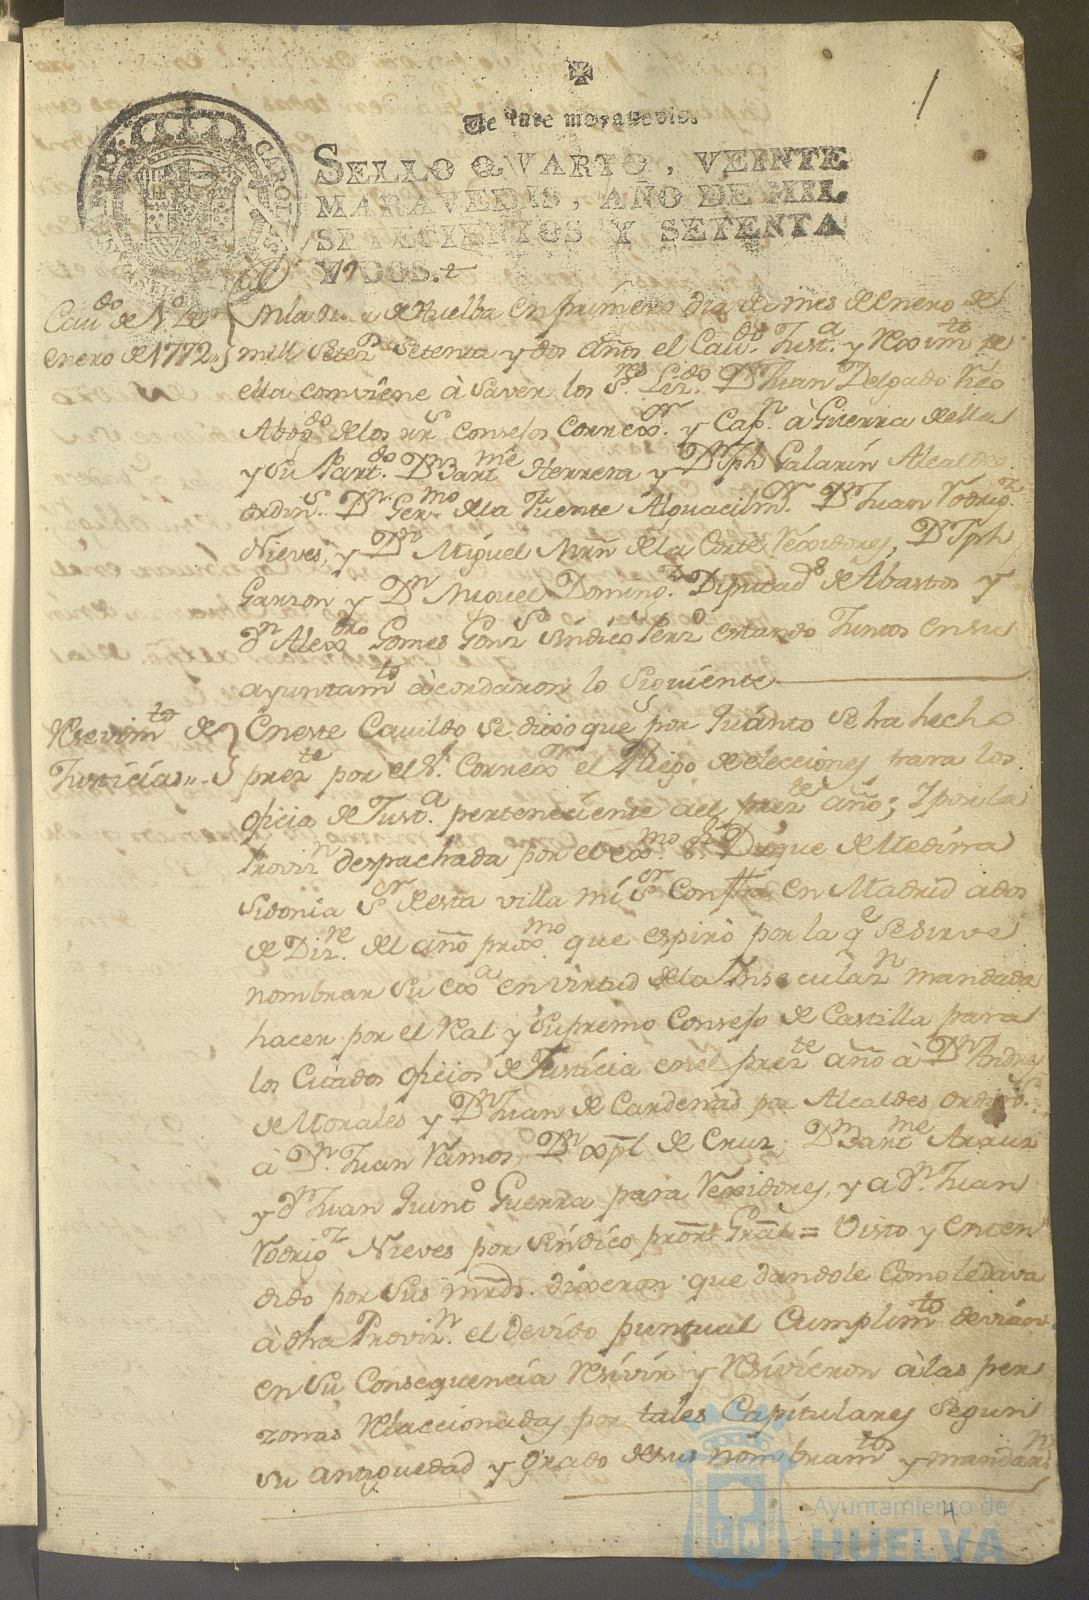 1
Veinte maravedis.
SELLO QVARTO, VEINTE
MARAVEDIS, AÑO DE MIL
SETECIENTOS Y SETENTA
Y DOS.
Cavdo de 1º de
enero de 1772
En la Villa de Huelba en primero dia del mes de Enero de
mill setez.s setenta y dos años el Cavdo. Just.a y Reximto de
ella conviene à saver los S.res Lizdo. Dn Juan Delgado Rico
Abogdo de los rr.s consejos Correxor. y Capn. à Guerra de ella
y su Partdo. Dn Bartme Herrera y Dn Jph Galarin Alcaldes
ordins. Dn. Germo de la Fuente Alguacil mor. Dn Juan Rodrigz.
Nieves, y Dn Miguel Mrñ de la Corte Rexidores, Dn Jph
Garzon y Dn Miguel Domingz. Diputads de Abastos y
Dn Alexo Gomes Gonz Sindico Perso estando Juntos en su
ayuntamto acordaron lo siguiente
Resevimto de
Justicias
En este Cavildo se dixo que por quanto se ha hecho
preste por el Sr. Correxor el Pliego de elecciones para los
oficio de Justa. perteneciente a el preste año; y por la
Provizn despachada por el exmo. Sr Duque de Medina
Sidonia Sr de esta villa mi Sr con fha en Madrid a dos
de Dizre. del año proxmo que espiró por la qe se sirve
nombrar su exa en virtud de la Insecularn mandada
hacer por el Real y Supremo Consejo de Castilla para
los Citados oficios de Justicia en el preste año à Dn Andres
de Morales y Dn Juan de Cardenas por Alcaldes ordins.
à Dn. Juan Ramos, Dn Xpl de Cruz, Dn Bartme Arauz
y Dn Juan Quinto Guerra para Rexidores, y a Dn. Juan
Rodrigz Nieves por sindico pror Gral = Visto y enten
dido por sus mrds. dixeron que dandole como le dava
à dha Provizn. el devido puntual Cumplimto devian
en su Consequencia Resivir y Resivieron à las per
zonas Relaccionadas por tales Capitulares segun
su antiguedad y grado de sus nombramtos y mandarn
Ayuntamiento de
HUELVA